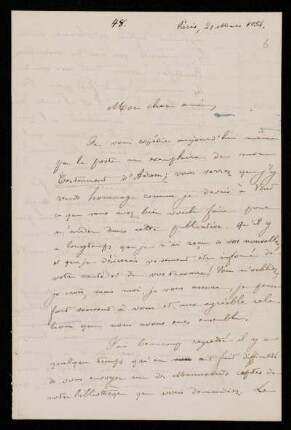 48.
Paris, 21 Mars 1854.
6
Mon cher ami,
Je vous expédie aujourd'hui même
par la poste un exemplaire de mon
Testament d'Adam; vous verrez que j'y
rends hommage comme je devais à tout
ce que vous avez bien voulu faire pour
m'aider dans cette publication. Qu'il y
a longtemps que je n'ai reçu de vos nouvelles
et que je désirerais vivement être informé de
votre santé et de vos travaux! Vous n'oubliez,
je crois, mais moi je vous assure, je pense
fort souvent à vous et aux agréables rela-
tions que nous avons eues ensemble.
J'ai beaucoup regretté il y a
quelque temps qu'on ait fait difficulté
de vous envoyer un des Manuscrits de
notre bibliothèque que vous demandiez. Le